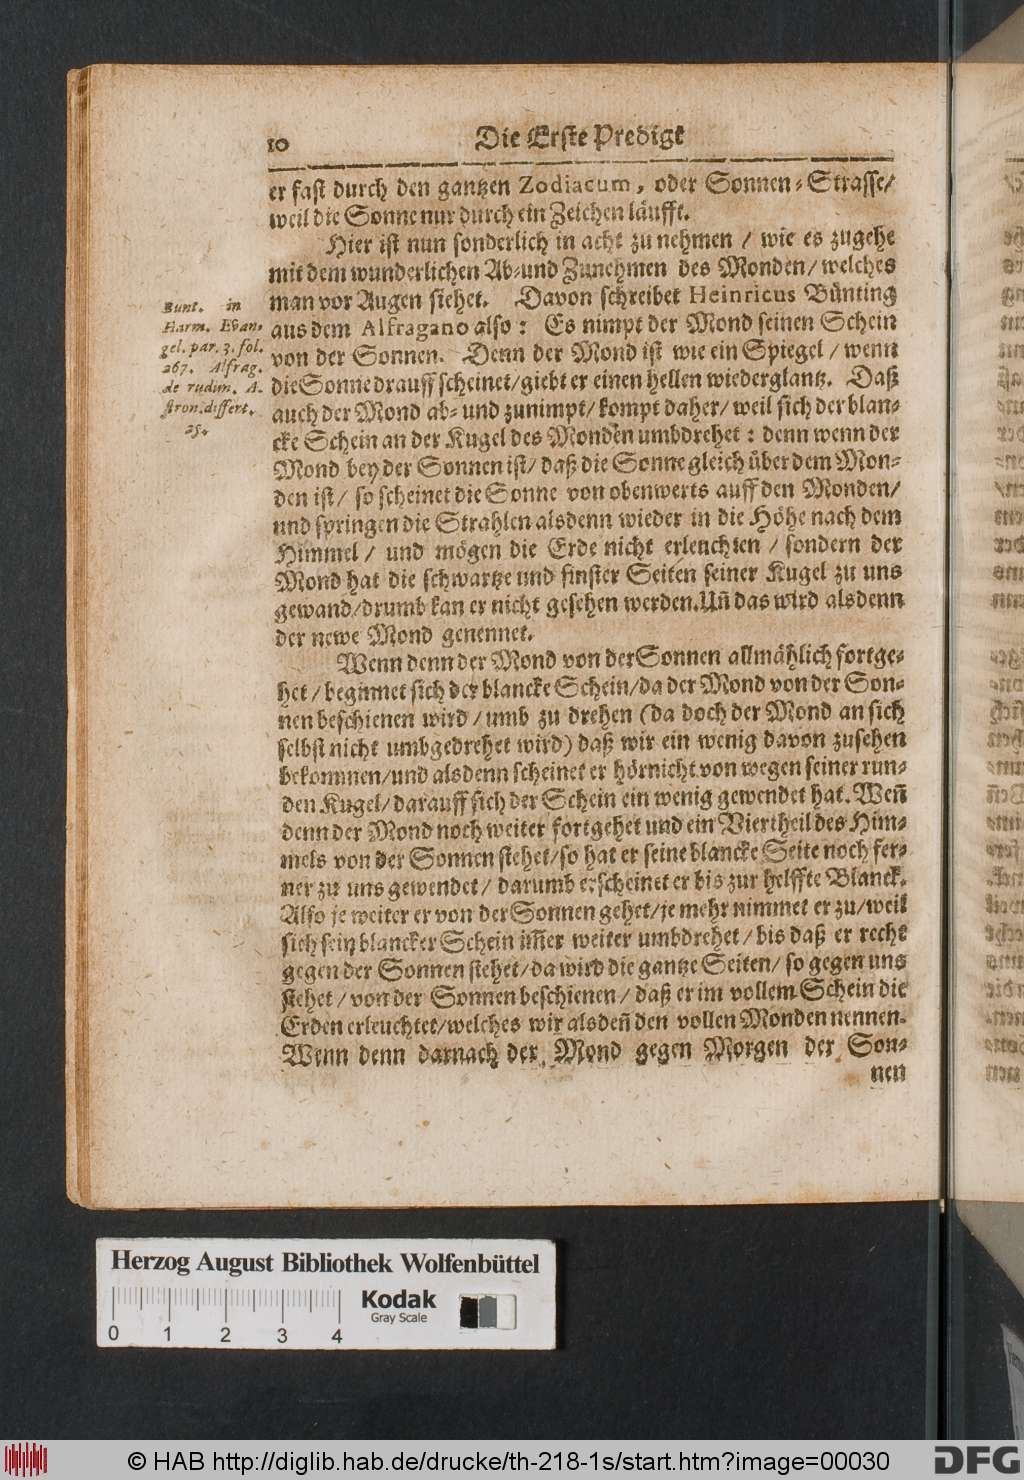 10 Die Erste Predigt
er fast durch den gantzen Zodiacum, oder Sonnen-Strasse/
weil die Sonne nur durch ein Zeichen läufft.
Hier ist nun sonderlich in acht zu nehmen / wie es zugehe
mit dem wunderlichen Ab- und Zunehmen des Monden/ welches
man vor Augen siehet. Davon schreibet Heinricus Bünting
aus dem Alfragano also: Es nimpt der Mond seinen Schein
von der Sonnen. Denn der Mond ist wie ein Spiegel / wenn
die Sonne drauff scheinet/ giebt er einen hellen wiederglantz. Daß
auch der Mond ab- und zunimpt/ kompt daher/ weil sich der blan-
cke Schein an der Kugel des Monden umbdrehet: denn wenn der
Mond bey der Sonnen ist/ daß die Sonne gleich über dem Mon-
den ist/ so scheinet die Sonne von obenwerts auff den Monden/
und springen die Strahlen alsdenn wieder in die Höhe nach dem
Himmel / und mögen die Erde nicht erleuchten / sondern der
Mond hat die schwartze und finster Seiten seiner Kugel zu uns
gewand/ drumb kan er nicht gesehen werden. Uñ das wird alsdenn
der newe Mond genennet.
Wenn denn der Mond von der Sonnen allmählich fortge-
het / beginnet sich der blancke Schein/ da der Mond von der Son-
nen beschienen wird / umb zu drehen (da doch der Mond an sich
selbst nicht umbgedrehet wird) daß wir ein wenig davon zusehen
bekommen/ und alsdenn scheinet er hörnicht von wegen seiner run-
den Kugel/ darauff sich der Schein ein wenig gewendet hat. Weñ
denn der Mond noch weiter fortgehet und ein Viertheil des Him-
mels von der Sonnen stehet/ so hat er seine blancke Seite noch fer-
ner zu uns gewendet/ darumb erscheinet er bis zur helffte Blanck.
Also je weiter er von der Sonnen gehet/ je mehr nimmet er zu/ weil
sich sein blancker Schein im̃er weiter umbdrehet/ bis daß er recht
gegen der Sonnen stehet/ da wird die gantze Seiten/ so gegen uns
stehet / von der Sonnen beschienen/ daß er im vollem Schein die
Erden erleuchtet/ welches wir alsdeñ den vollen Monden nennen.
Wenn denn darnach der Mond gegen Morgen der Son-
nen
Bunt. in
Harm. Evan-
gel. par. 3. fol.
267. Alfrag.
de rudim. A-
stron. differt.
25.
Herzog August Bibliothek Wolfenbüttel
Kodak
Gray Scale
0 1 2 3 4
© HAB http://diglib.hab.de/drucke/th-218-1s/start.htm?image=00030
DFG